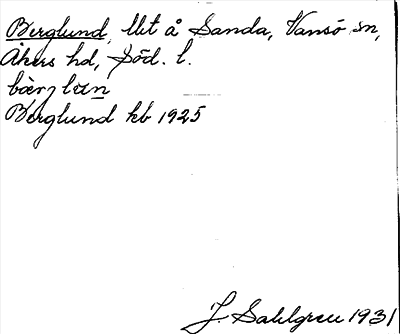 Berglund, lht å Sanda, Vansö sn,
Åkers hd, Söd. l.
Berglund kb 1925
J. Sahlgren 1931